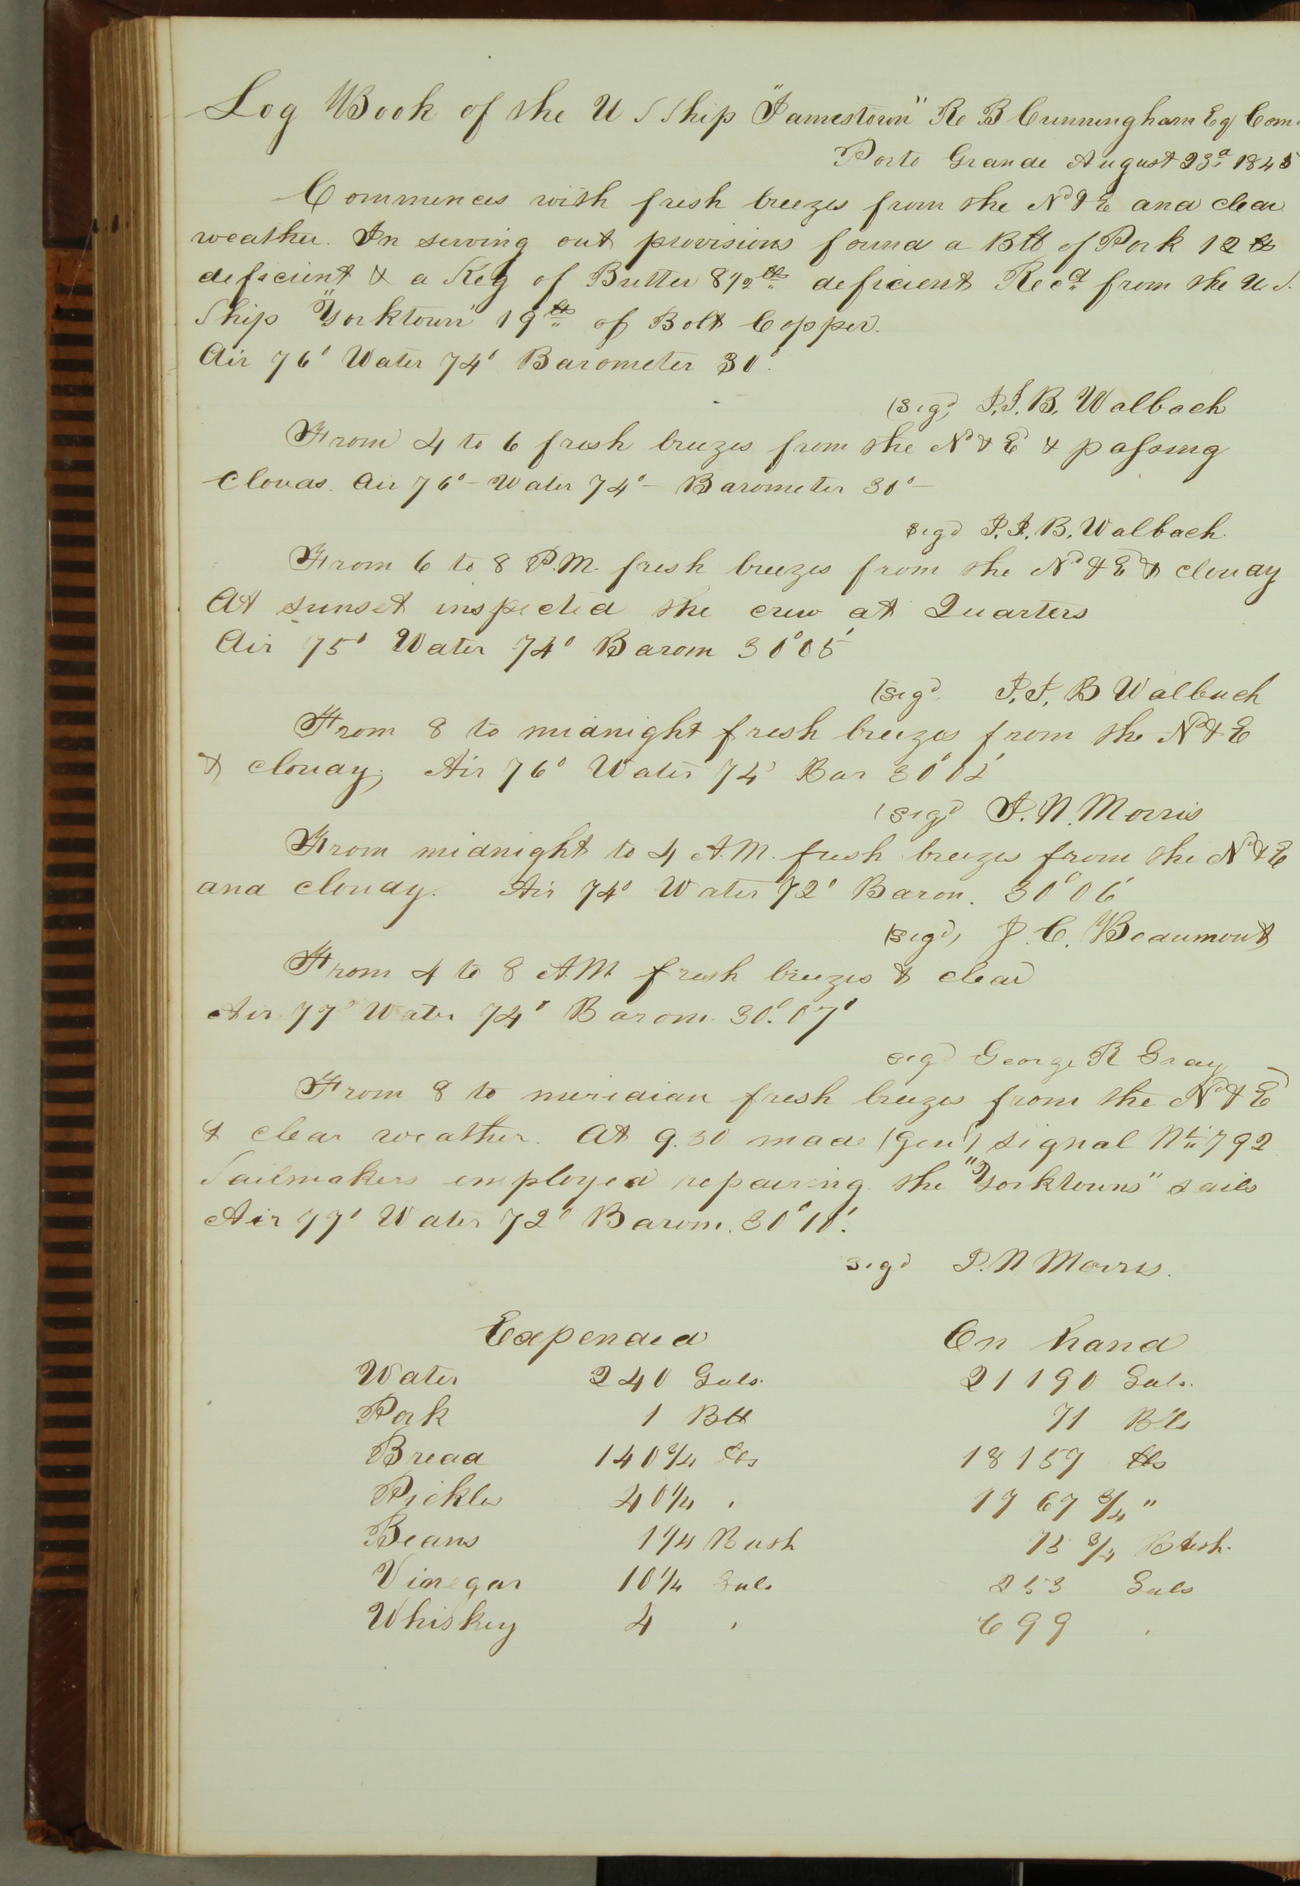 Log Book of the U S Ship "Jamestown" R B Cunningham Eq Com.
Porto Grande August 23d 1845
Commences with fresh breezes from the Nd & E and clear
weather. In serving out provisions found a Bll of Pork 12 lbs
deficient & a Keg of Butter 8 1/2 lbs deficient Recd from the U.S.
Ship "Yorktown" 19 lbs of Bolt Copper.
Air 76° Water 74° Barometer 30°.
(sigd) J.J.B. Walbach
From 4 to 6 fresh breezes from the Nd & Ed & passing
Clouds. Air 76° - Water 74° - Barometer 30° -
sigd J.J.B. Walbach.
From 6 to 8 P.M. fresh breezes from the Nd & Ed & cloudy
At sunset inspected the crew at Quarters
Air 75° Water 74° Barom 30°05'
(sigd J.J. B Walbach
From 8 to midnight fresh breezes from the Nd & E
& cloudy; Air 76° Water 74° Bar 30°
(sigd J. N. Morris
From midnight to 4 A.M. fresh breezes from the Nd & E
and cloudy. Air 74° Water 72° Barom. 30°06'
(sigd), J. C. Beaumont
From 4 to 8 A.M. fresh breezes & clear
Air 77° Water 74° Barom. 30°.07'
sigd George R Gray
From 8 to meridian fresh breezes from the Nd & Ed
& clear weather. At 9.30 made (Genl) signal No 792
Sailmakers employed repairing the "Yorktowns" sails
Air 77° Water 72° Barom. 30°10'.
sigd J. N Morris.
Expended On hand
Water 240 Gals. 21190 Gals.
Pork 1 Bll 71 Blls
Bread 140 3/4 lbs 18159 lbs
Pickles 40 1/4 " 1767 3/4 "
Beans 1 1/4 Bush 75 3/4 Bush.
Vinegar 10 1/4 Gals 253 Gals
Whiskey 4 " 699 "